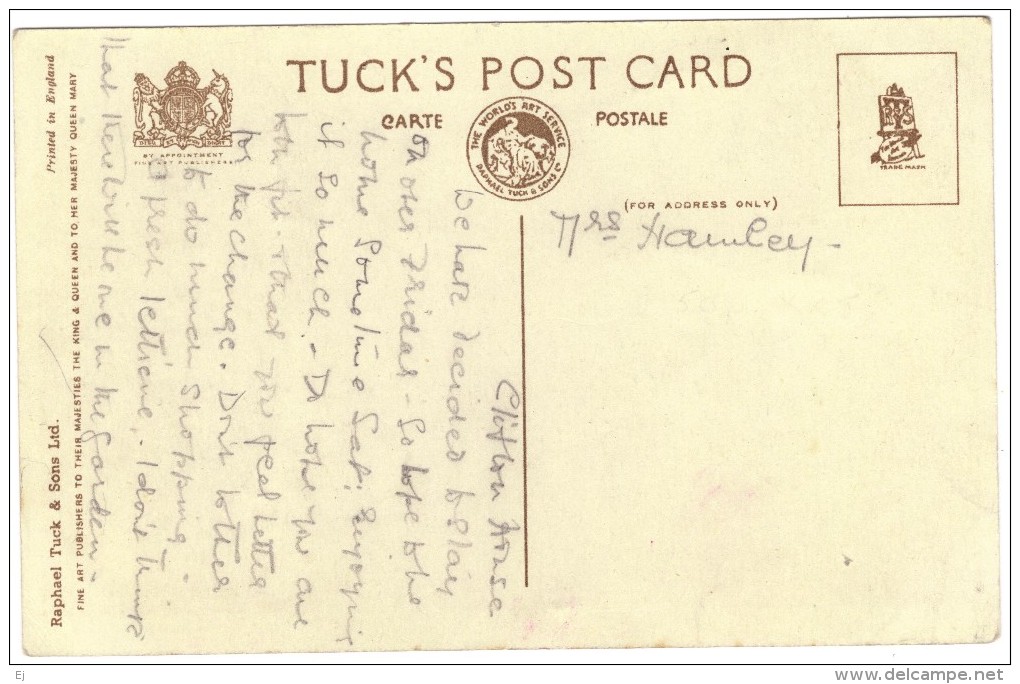 TUCK'S POST CARD
CARTE POSTALE
THE WORLD'S ART SERVICE
RAPHAEL TUCK & SONS LTD
(FOR ADDRESS ONLY)
BY APPOINTMENT
FINE ART PUBLISHERS
TRADE MARK
Mrs. Hamley -
Clifton House
We have decided to stay
on over Friday - So hope to be
home Sometime Sat; Enjoying
it So much. - Do hope you are
both fit - & that you feel better
for the change. Don't bother
to do much shopping -
a fresh lettuce. - I don't think
that there will be one in the garden -
Raphael Tuck & Sons Ltd.
Printed in England
FINE ART PUBLISHERS TO THEIR MAJESTIES THE KING & QUEEN AND TO HER MAJESTY QUEEN MARY
Ej
www.delcampe.net